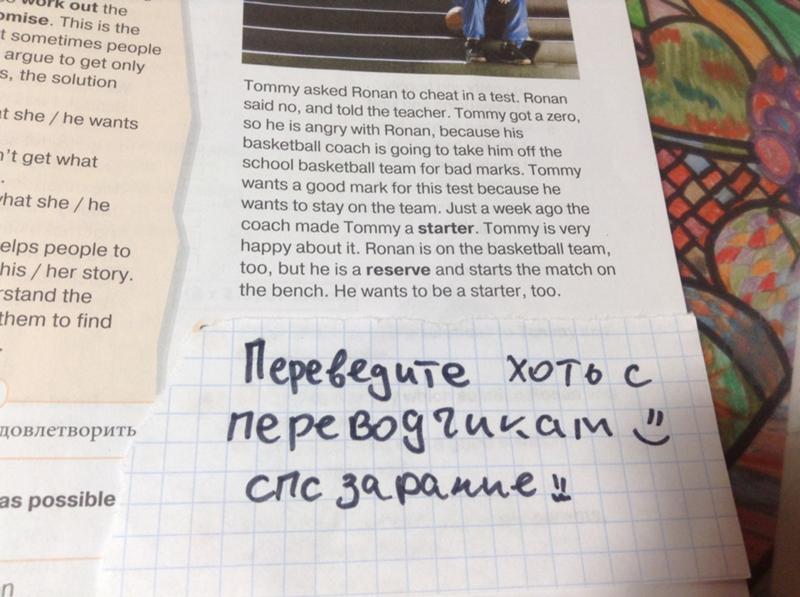 work out the
omise. This is the
t sometimes people
argue to get only
s, the solution
at she / he wants
n't get what
.
what she / he
elps people to
his / her story.
rstand the
them to find
довлетворить
as possible
n
Tommy asked Ronan to cheat in a test. Ronan
said no, and told the teacher. Tommy got a zero,
so he is angry with Ronan, because his
basketball coach is going to take him off the
school basketball team for bad marks. Tommy
wants a good mark for this test because he
wants to stay on the team. Just a week ago the
coach made Tommy a starter. Tommy is very
happy about it. Ronan is on the basketball team,
too, but he is a reserve and starts the match on
the bench. He wants to be a starter, too.
Переведите хоть с
переводчикам
спс зарание!!